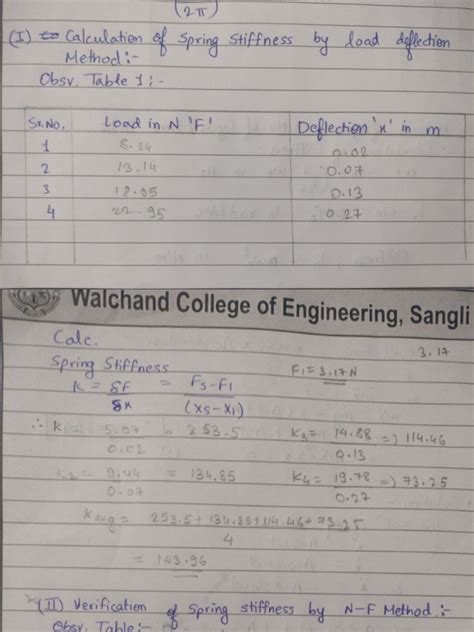 (2π)
(I) Calculation of Spring Stiffness by load deflection
Method:-
Obsv. Table 1:-
Sr.No. Load in N 'F' Deflection 'x' in m
1 8.24 0.02
2 13.14 0.07
3 18.05 0.13
4 22.95 0.27
Walchand College of Engineering, Sangli
Calc. 3.17
Spring Stiffness F1 = 3.17 N
K = δF/δx = F5-F1/(x5-x1)
∴ K1 = 5.07/0.02 = 253.5 K3 = 14.88/0.13 => 114.46
K2 = 9.44/0.07 = 134.85 K4 = 19.78/0.27 => 73.25
Kavg = 253.5+134.85+114.46+73.25/4
= 143.96
(II) Verification of Spring stiffness by N-F Method:-
Obsv. Table:-